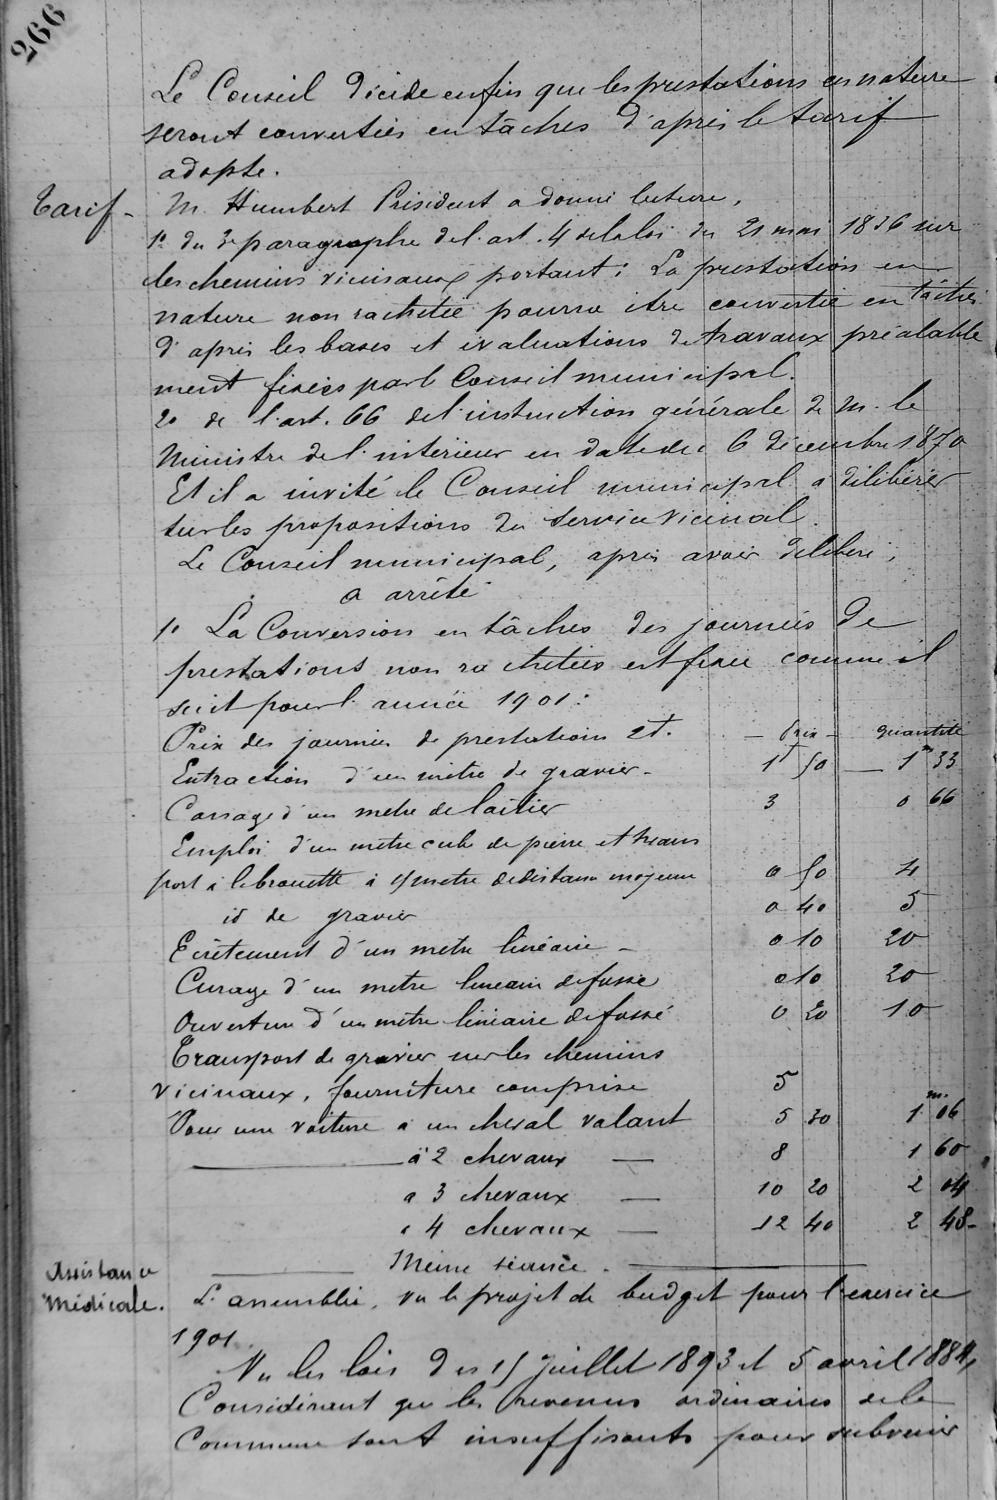 266
Le Conseil décide enfin que les prestations en nature
seront converties en tâches d'après le tarif
adopté.
Tarif - M. Humbert Président a donné lecture,
1º du 3e paragraphe de l'art. 4 de la loi du 21 mai 1836 sur
les chemins vicinaux portant : La prestation en
nature non rachetée pourra être convertie en tâches
d'après les bases et évaluations de travaux préalable
ment fixées par le Conseil municipal.
2º de l'art. 66 de l'instruction générale de M. le
Ministre de l'intérieur en date du 6 décembre 1870
Et il a invité le Conseil municipal à délibérer
sur les propositions du service vicinal.
Le Conseil municipal, après avoir délibéré,
a arrêté
1º La Conversion en tâches des journées de
prestations non rachetées est fixée comme il
suit pour l'année 1901 :
Prix des journées de prestations et. — Prix — quantité
Extraction d'un mètre de gravier - 1f 50 — 1m 33
Cassage d'un mètre de laitier 3 0 66
Emploi d'un mètre cube de pierre et trans
port à la brouette à mètre de distance moyenne 0 50 4
id de gravier 0 40 5
Ecrêtement d'un mètre linéaire - 0 10 20
Curage d'un mètre linéaire de fossé 0 10 20
Ouverture d'un mètre linéaire de fossé 0 20 10
Transport de gravier sur les chemins
vicinaux, fourniture comprise 5
Pour une voiture à un cheval valant 5 30 1m. 06
— à 2 chevaux — 8 1 60
a 3 chevaux — 10 20 2 04
à 4 chevaux — 12 40 2 48 -
— Même séance. —
Assistance
Médicale. L'assemblée, vu le projet de budget pour l'exercice
1901.
Vu les lois des 15 Juillet 1893 et 5 avril 1884,
Considérant que les revenus ordinaires de la
Commune sont insuffisants pour subvenir